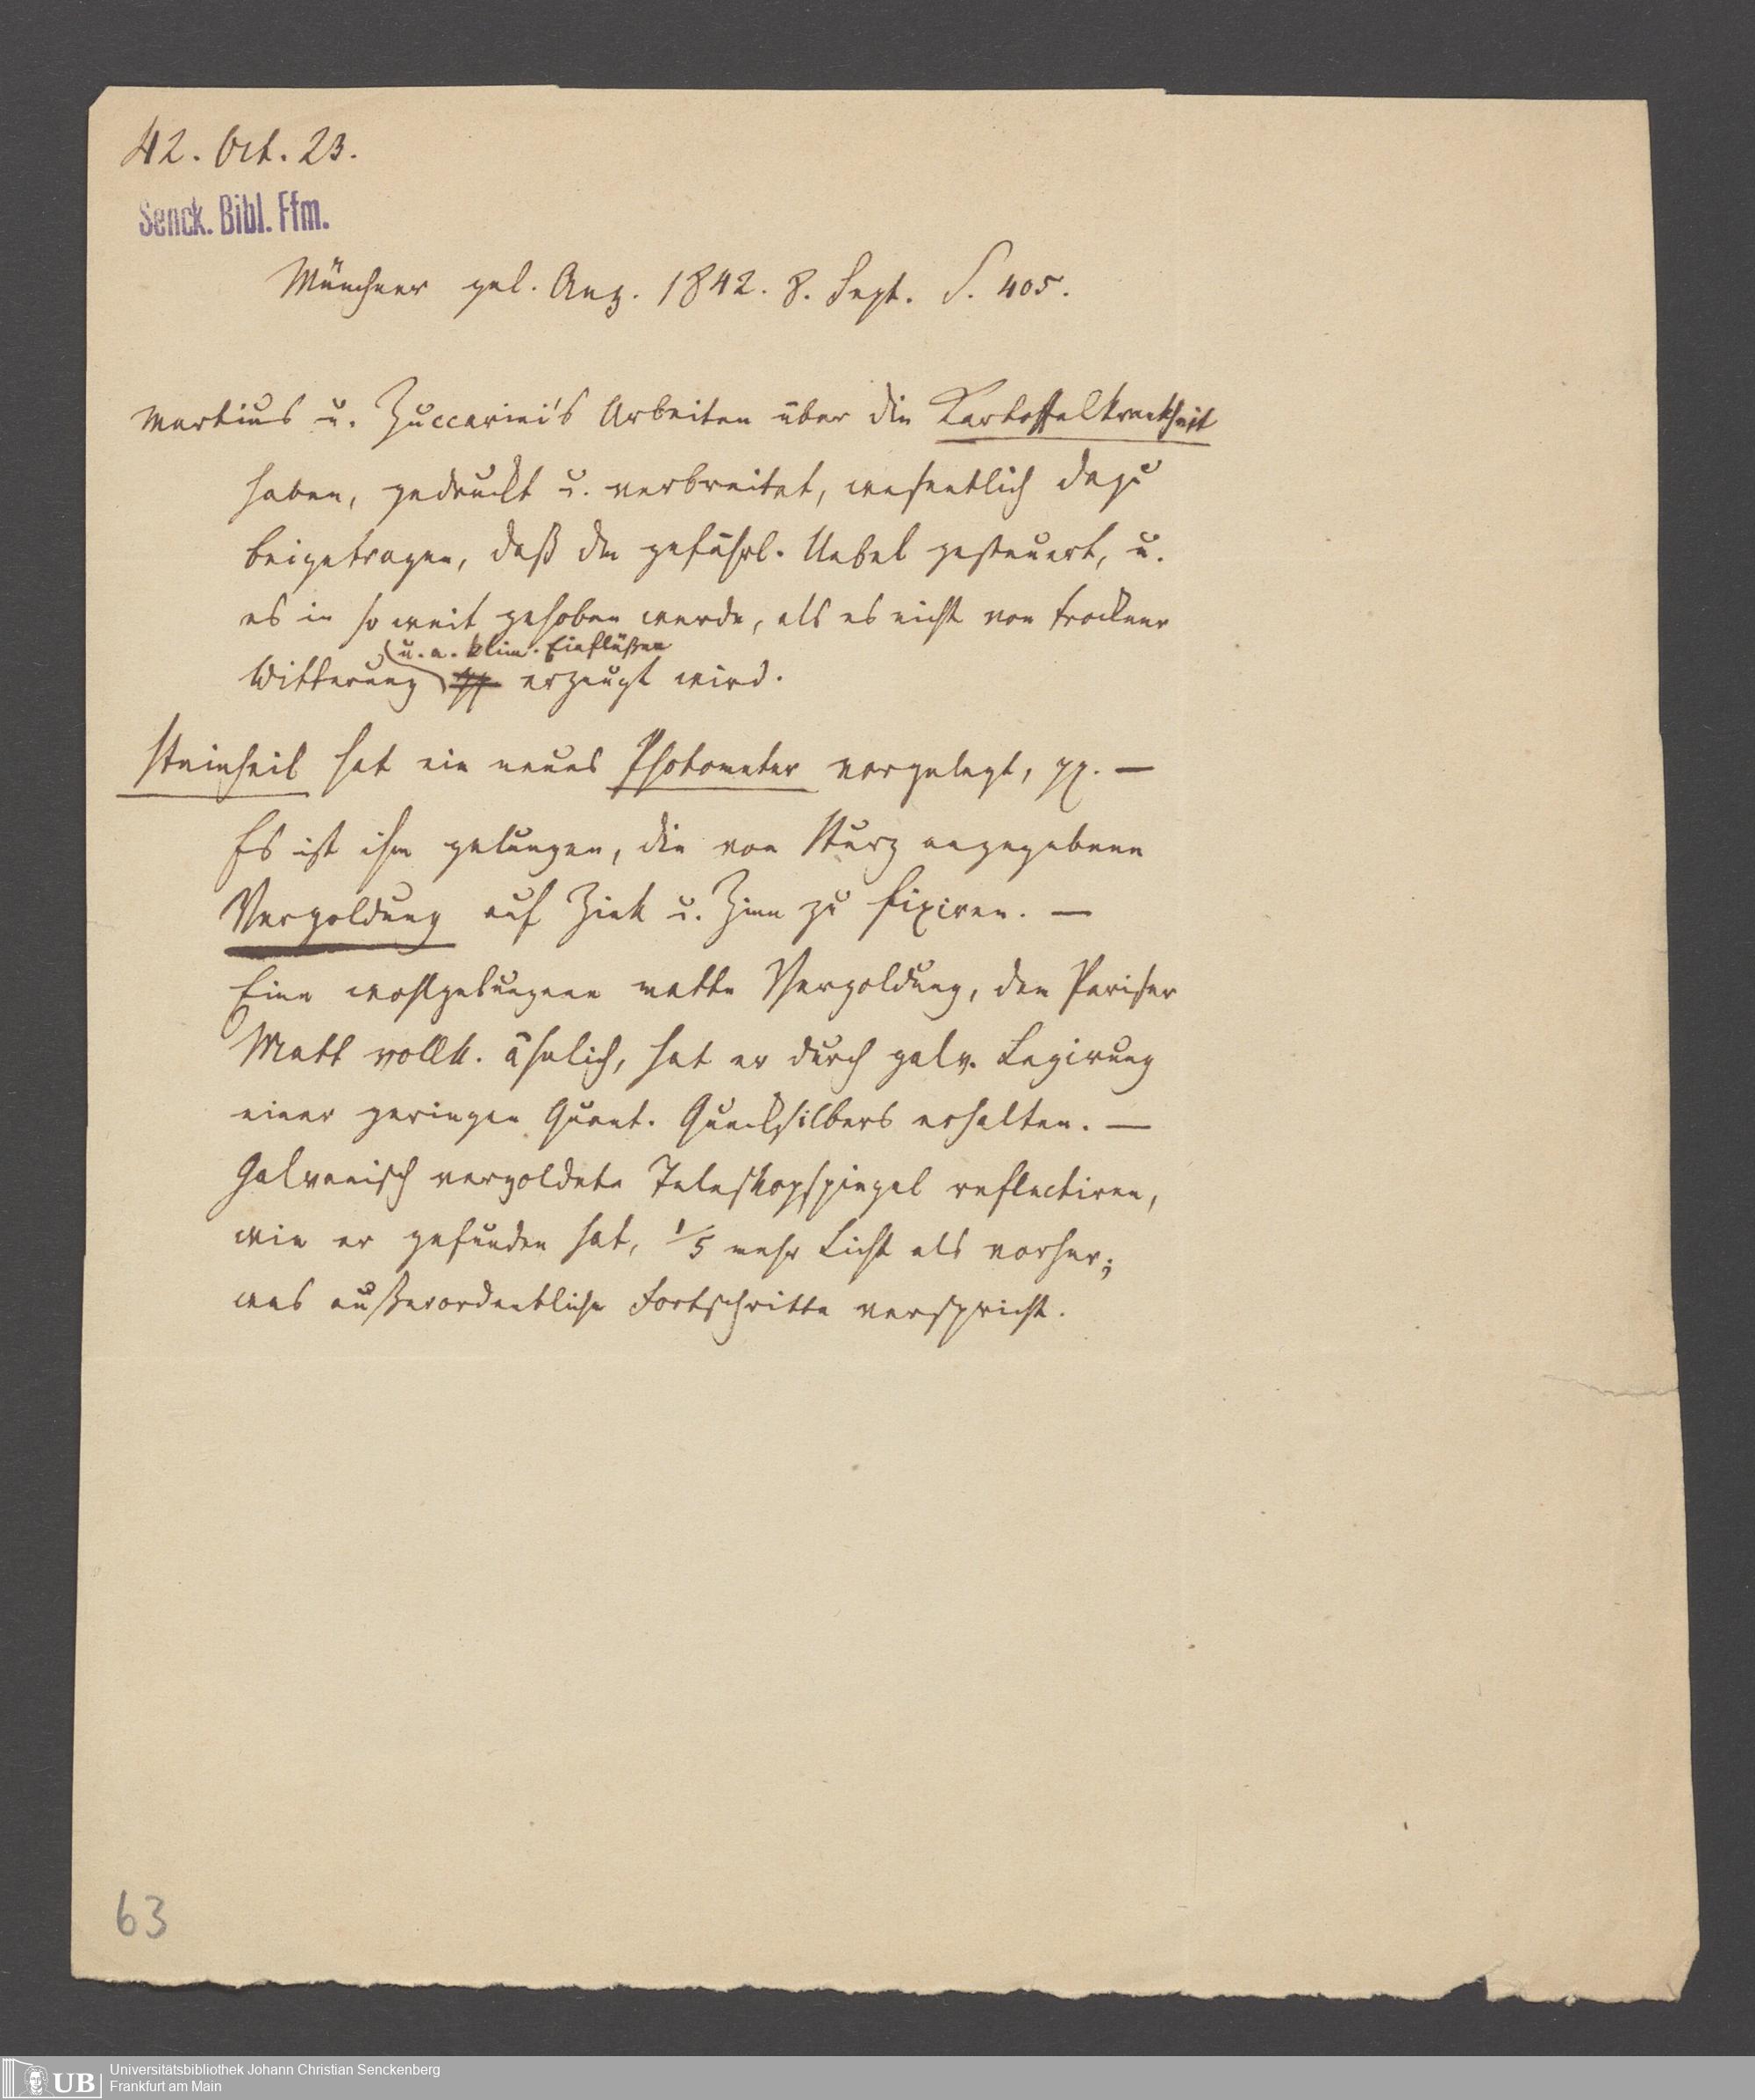 42. Oct. 23.
Senck. Bibl. Ffm.
Münchner gel. Anz. 1842. 8. Sept. S. 405.
Martius u. Zuccarini's Arbeiten über die Kartoffelkrankheit
haben, gedruckt u. verbreitet, wesentlich dazu
beigetragen, daß dem gefährl. Uebel gesteuert, u.
es in so weit gehoben werde, als es nicht von trockner
u. a. klim. Einflüßen
Witterung erzeugt wird.
Steinheil hat ein neues Photometer vorgelegt, pp. —
Es ist ihm gelungen, die von Sturz angegebene
Vergoldung auf Zink u. Zinn zu fixiren. —
Eine wohlgelungene matte Vergoldung, dem Pariser
Matt vollk. ähnlich, hat er durch galv. Legirung
einer geringen Quant. Quecksilbers erhalten. —
Galvanisch vergoldete Teleskopspiegel reflectiren,
wie er gefunden hat, 1/5 mehr Licht als vorher;
was außerordentliche Fortschritte verspricht.
63
UB
Universitätsbibliothek Johann Christian Senckenberg
Frankfurt am Main